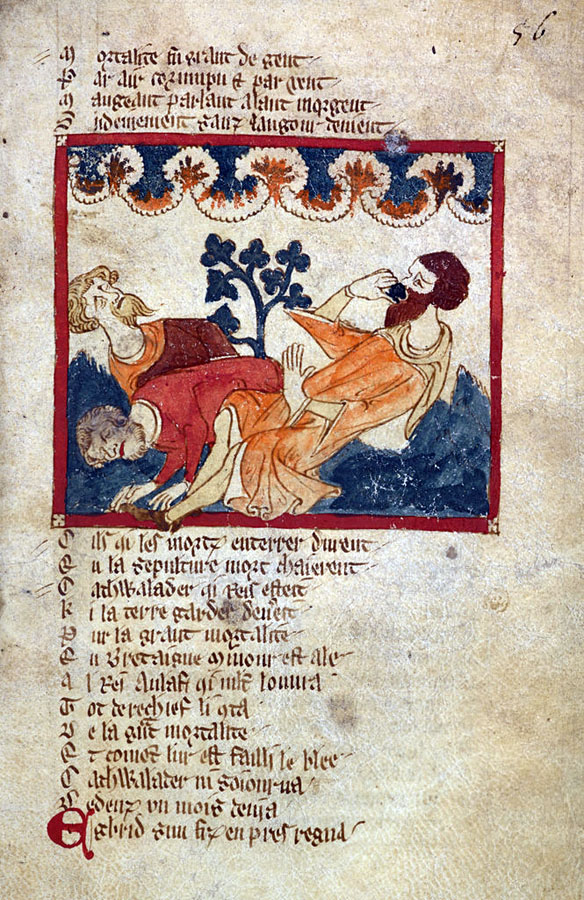 56
Mortalite fu grant de gent
Par air corrumpu & par vent
Mangeant parlant alant morgent
Sudeinement sanz langour
Cils qi les mortz enterrer durent
En la sepulture mort chaierent
Cathwalader qi Reis esteit
ki la terre garder deveit
Pur la grant mortalite
En Bretaigne Menour est ale
Al Rei Aulafi qi mlt louura
Tot derechief li
De la gnt mortalite
Et coment lur est failli le blee
Cathwalader ni soiourna
un mois
Egbrid sun fiz en pres regna